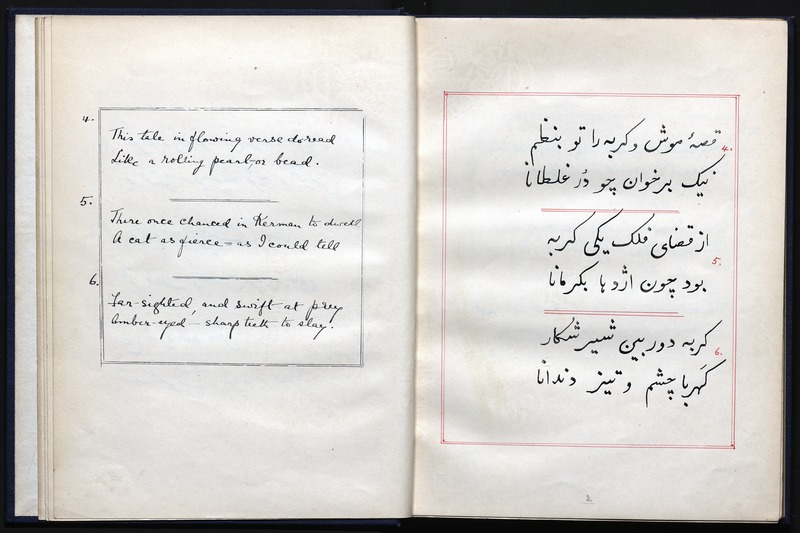 4.
This tale in flowing verse do read
Like a rolling pearl, or bead.
5.
There once chanced in Kerman to dwell
A cat as fierce = as I could tell
6.
Far-sighted, and swift at prey
Amber-eyed - sharp teeth to slay.
قصهٔ موش و گربه را تو بنظم
4.
نیک برخوان چو دُر غلطانا
از قضای فلک یکی گربه
5.
بود چون اژدها بکرمانا
گربه دوربین شیر شکار
6.
کَهربا چشم و تیز دندانا
2